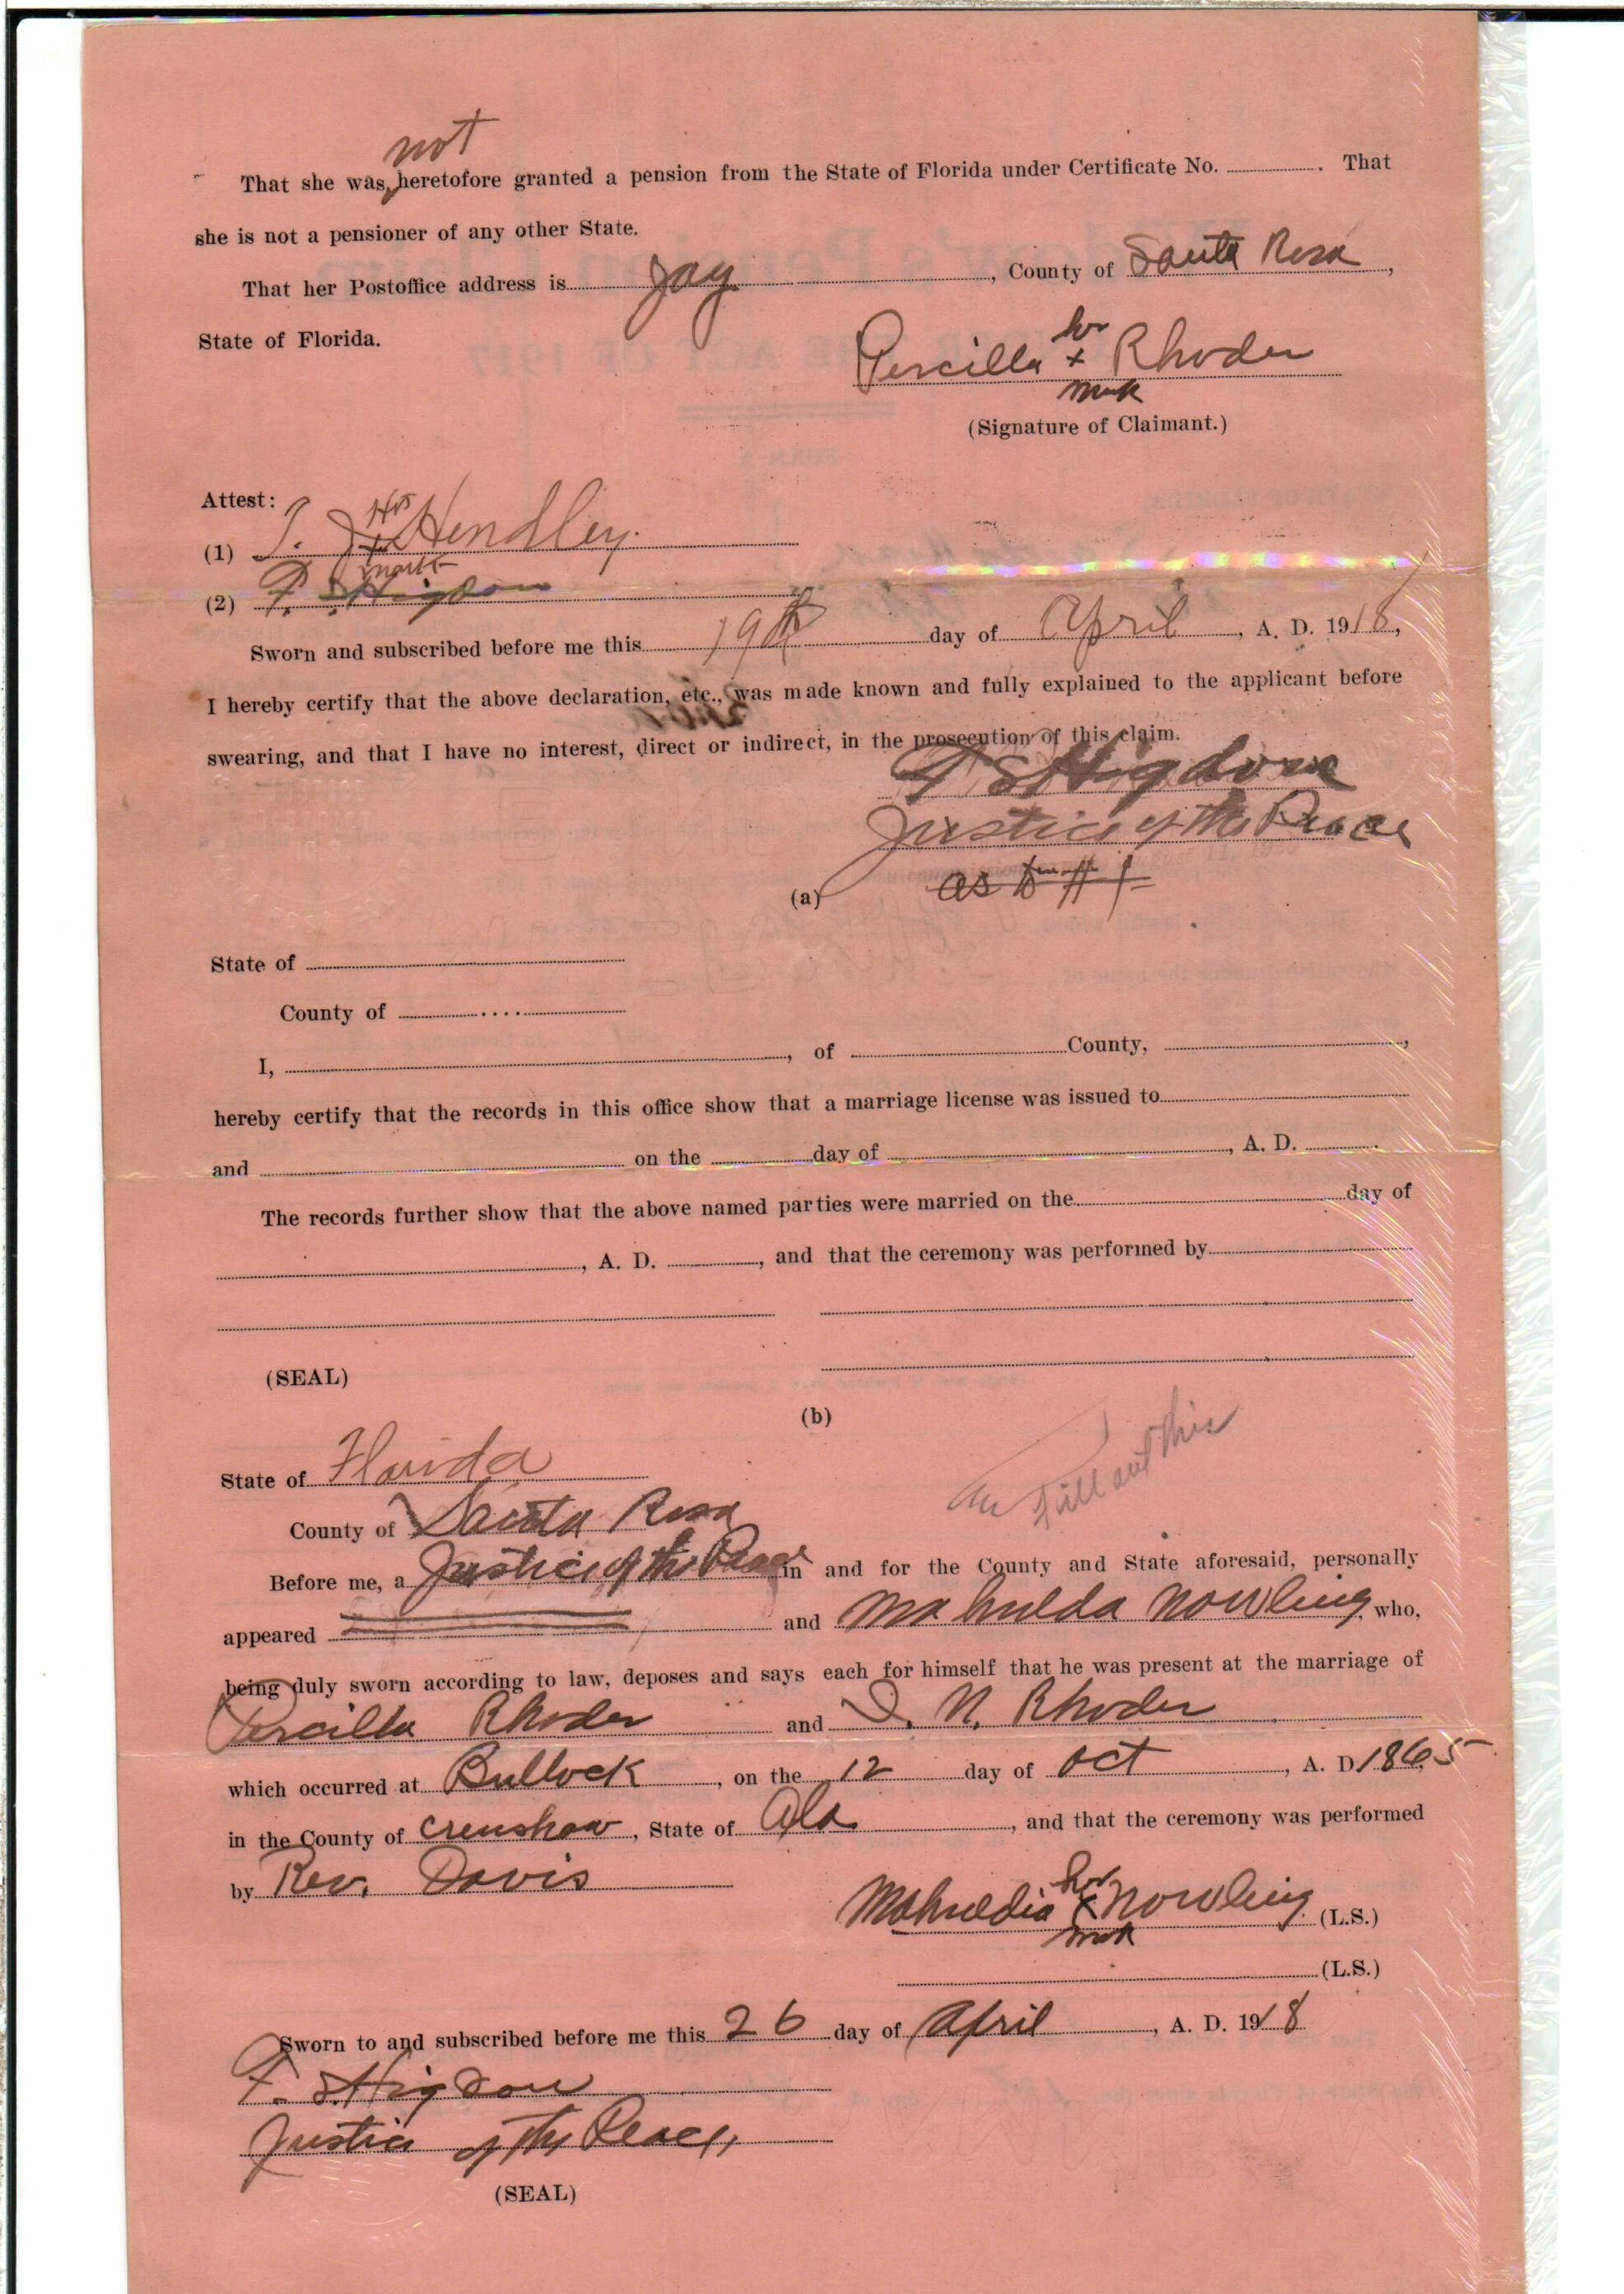 not
That she was, heretofore granted a pension from the State of Florida under Certificate No. ........ . That
she is not a pensioner of any other State.
That her Postoffice address is Jay , County of Santa Rosa ,
State of Florida.
her
Percilla x Rhoder
mark
(Signature of Claimant.)
Attest:
His
(1) T. J. x Hendley.
mark
(2) F. S. Higdon
Sworn and subscribed before me this 19th day of April , A. D. 1918,
I hereby certify that the above declaration, etc., was made known and fully explained to the applicant before
swearing, and that I have no interest, direct or indirect, in the prosecution of this claim.
F S Higdon
Justice of the Peace
(a)
as to # 1
State of
County of
I, ........, of ........ County, ........,
hereby certify that the records in this office show that a marriage license was issued to
and ........ on the ........ day of ........, A. D. ........
The records further show that the above named parties were married on the ........ day of
........, A. D. ........, and that the ceremony was performed by
(SEAL)
(b)
fill out this
State of Florida
County of Santa Rosa
Before me, a Justice of the Peace in and for the County and State aforesaid, personally
appeared ........ and Mahulda Nowling who,
being duly sworn according to law, deposes and says each for himself that he was present at the marriage of
Percilla Rhoder and I. N. Rhoder
which occurred at Bullock , on the 12 day of Oct , A. D. 1865
in the County of Crenshaw , State of Ala , and that the ceremony was performed
by Rev. Davis
her
Mahuldia x Nowling (L.S.)
mark
(L.S.)
Sworn to and subscribed before me this 26 day of April , A. D. 1918
F. S. Higdon
Justice of the Peace,
(SEAL)